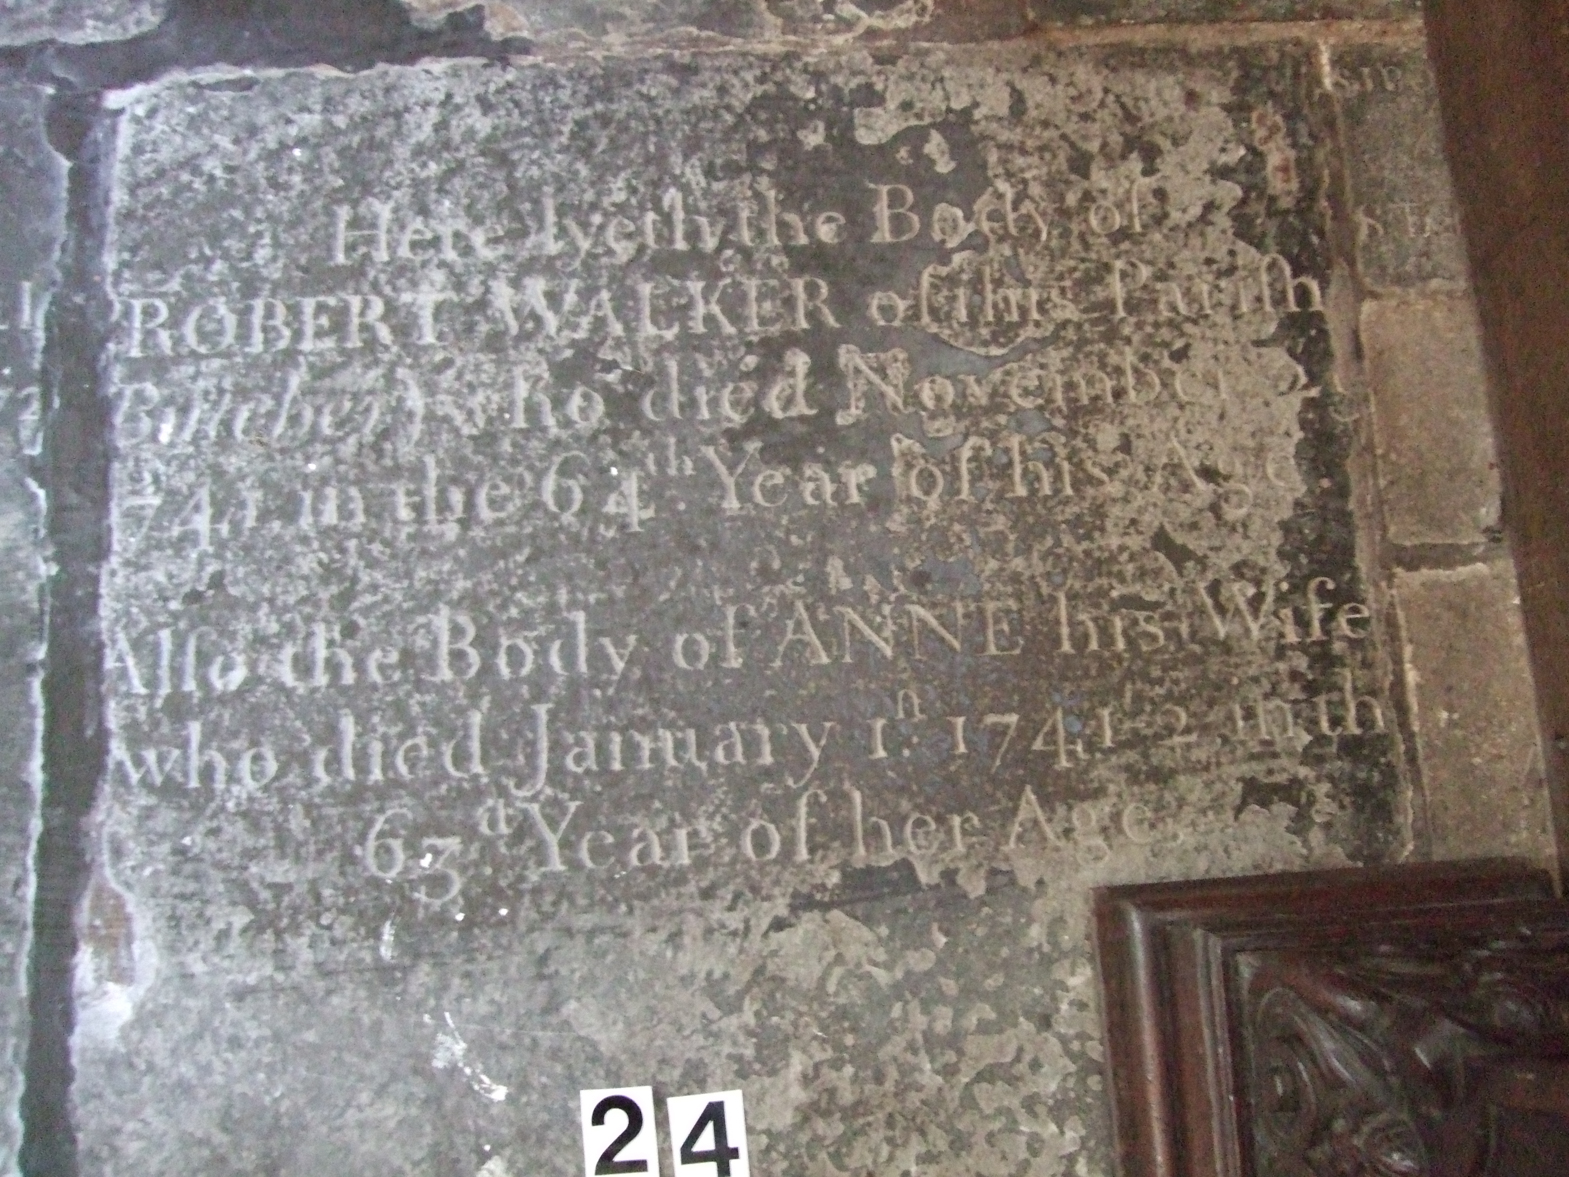 Here lyeth the Body of
ROBERT WALKER of this Parish
Butcher) who died November
741 in the 64th Year of his Age
Also the Body of ANNE his Wife
who died January 1n. 1741-2 in th
63d Year of her Age
24